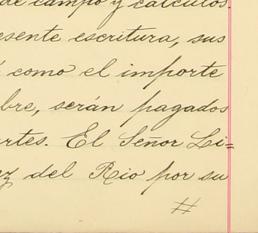 de campo y cálculos.
esente escritura, sus
como el importe
bre, serán pagados
rtes. El Señor Li=
ez del Rio por su
#